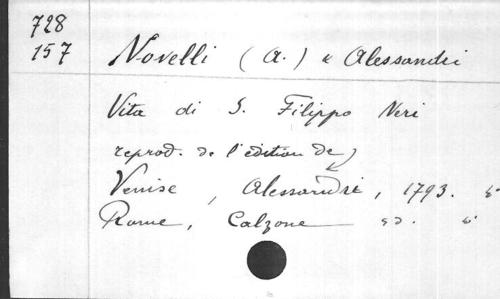 728
157
Novelli (A.) & Alessandri
Vita di S. Filippo Neri
reprod. de l'édition de
Venise, Alessandri, 1793.
Rome, Calzone sd.